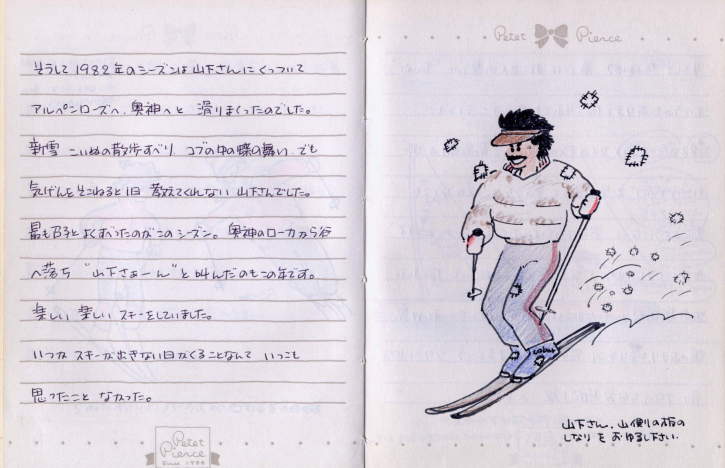 そうして1982年のシーズンは山下さんにくっついて
アルペンローズへ、奥神へと 滑りまくったのでした。
新雪 こいぬの散歩すべり コブの中の蝶の舞い でも
気げんをそこねると1日 教えてくれない 山下さんでした。
最も よくすべったのがこのシーズン。奥神のローカから谷
へ落ち "山下さぁーん"と叫んだのもこの年です。
楽しい、楽しい スキーをしていました。
いつか スキーが出来ない日がくることなんて いっこも
思ったこと なかった。
Petet Pierce
Since 1988
Petet Pierce
山下さん、山側の板の
しなりを おゆるし下さい。